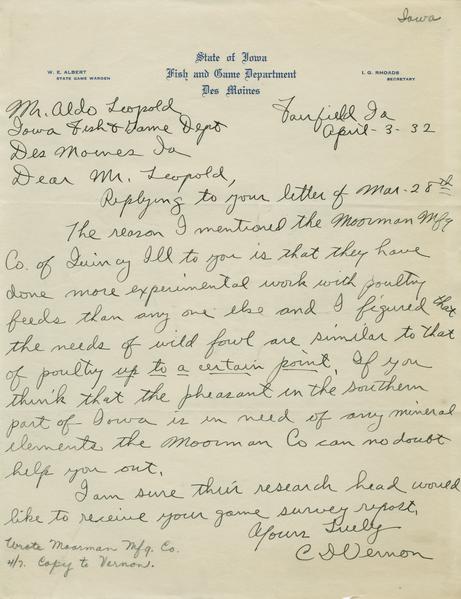 Iowa
State of Iowa
W. E. ALBERT
STATE GAME WARDEN
Fish and Game Department
I. G. RHOADS
SECRETARY
Des Moines
Mr. Aldo Leopold
Fairfield Ia
Iowa Fish & Game Dept
April-3-32
Des Moines Ia
Dear Mr. Leopold,
Replying to your letter of Mar-28th
The reason I mentioned the Moorman Mfg
Co. of Quincy Ill to you is that they have
done more experimental work with poultry
feeds than any one else and I figured that
the needs of wild fowl are similar to that
of poultry up to a certain point. If you
think that the pheasant in the southern
part of Iowa is in need of any mineral
elements the Moorman Co can no doubt
help you out.
I am sure their research head would
like to receive your game survey report.
Yours Truly
C D Vernon
Wrote Moorman Mfg. Co.
4/7. Copy to Vernon.